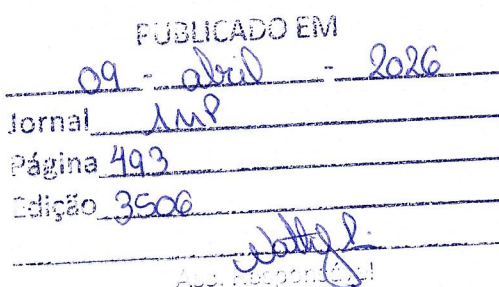 PUBLICADO EM
09 - abril - 2026
Jornal AMP
Página 493
Edição 3506
Ass. Responsável